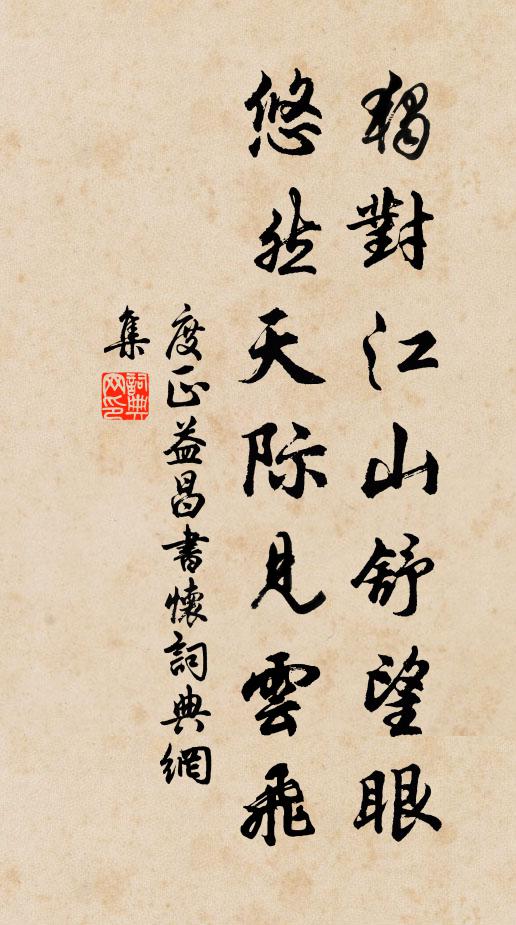 獨對江山舒望眼
悠然天際見雲飛
度正益昌書懷詞典網
集
詞典
网印